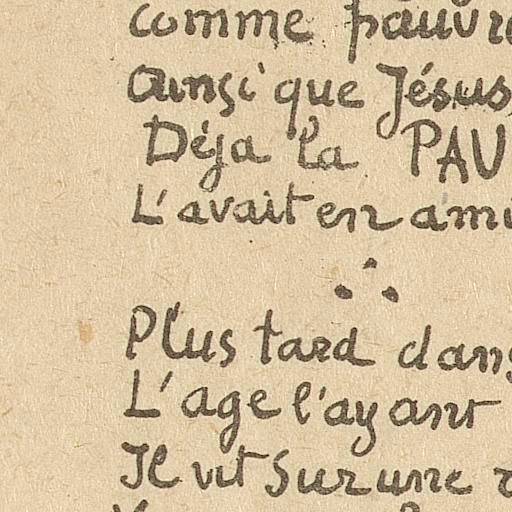 comme pauvre
ainsi que Jésus,
Déja la PAU
L'avait en ami
Plus tard dans
L'age l'ayant
Il vit sur une